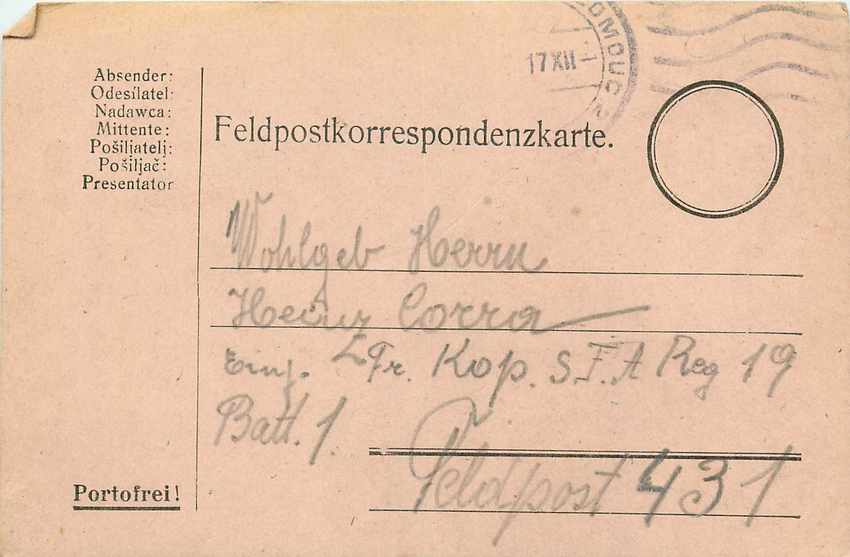 OLOMOUC 2
17 XII
Absender:
Odesílatel:
Nadawca:
Mittente:
Pošiljatelj:
Pošiljač:
Presentator
Feldpostkorrespondenzkarte.
Wohlgeb Herrn
Heinz Corra
Einj. Kop. S. F. A Reg 19
Batt. 1.
Feldpost 431
Portofrei!